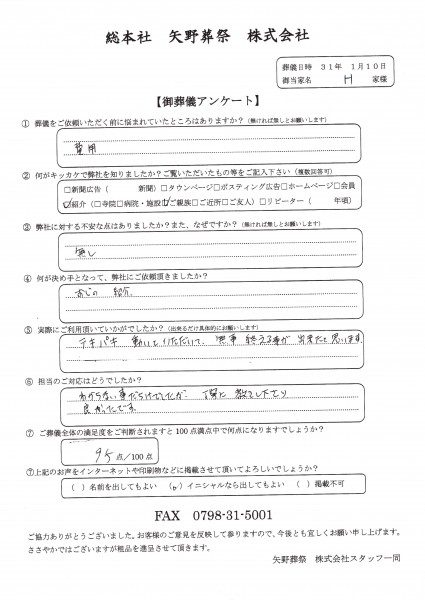 総本社 矢野葬祭 株式会社
葬儀日時 31年 1月10日
御当家名 H 家様
【御葬儀アンケート】
① 葬儀をご依頼いただく前に悩まれていたところはありますか？（無ければ無しとお願いします）
費用
② 何がキッカケで弊社を知りましたか？ご覧いただいたもの等をご記入下さい（複数回答可）
□新聞広告（ 新聞）□タウンページ□ポスティング広告□ホームページ□会員
☑紹介（□寺院□病院・施設☑ご親族□ご近所□ご友人）□リピーター（ 年頃）
③ 弊社に対する不安な点はありましたか？また、なぜですか？（無しなら無しとお願いします）
無し
④ 何が決め手となって、弊社にご依頼頂きましたか？
おじの 紹介.
⑤ 実際にご利用頂いていかがでしたか？（出来るだけ具体的にお願いします）
テキパキ 動いていただいて、無事 終える事が 出来たと思います
⑥ 担当のご対応はどうでしたか？
わからない事だらけでしたが 丁寧に 教えて下さり
良かったです。
⑦ ご葬儀全体の満足度をご判断されますと100点満点中で何点になりますでしょうか？
95点／100点
⑦上記のお声をインターネットや印刷物などに掲載させて頂いてよろしいでしょうか？
（ ）名前を出してもよい （o）イニシャルなら出してもよい （ ）掲載不可
FAX 0798-31-5001
ご協力ありがとうございました。お客様のご意見を反映して参りますので、今後とも宜しくお願い申し上げます。
ささやかではございますが粗品を進呈させて頂きます。
矢野葬祭 株式会社スタッフ一同